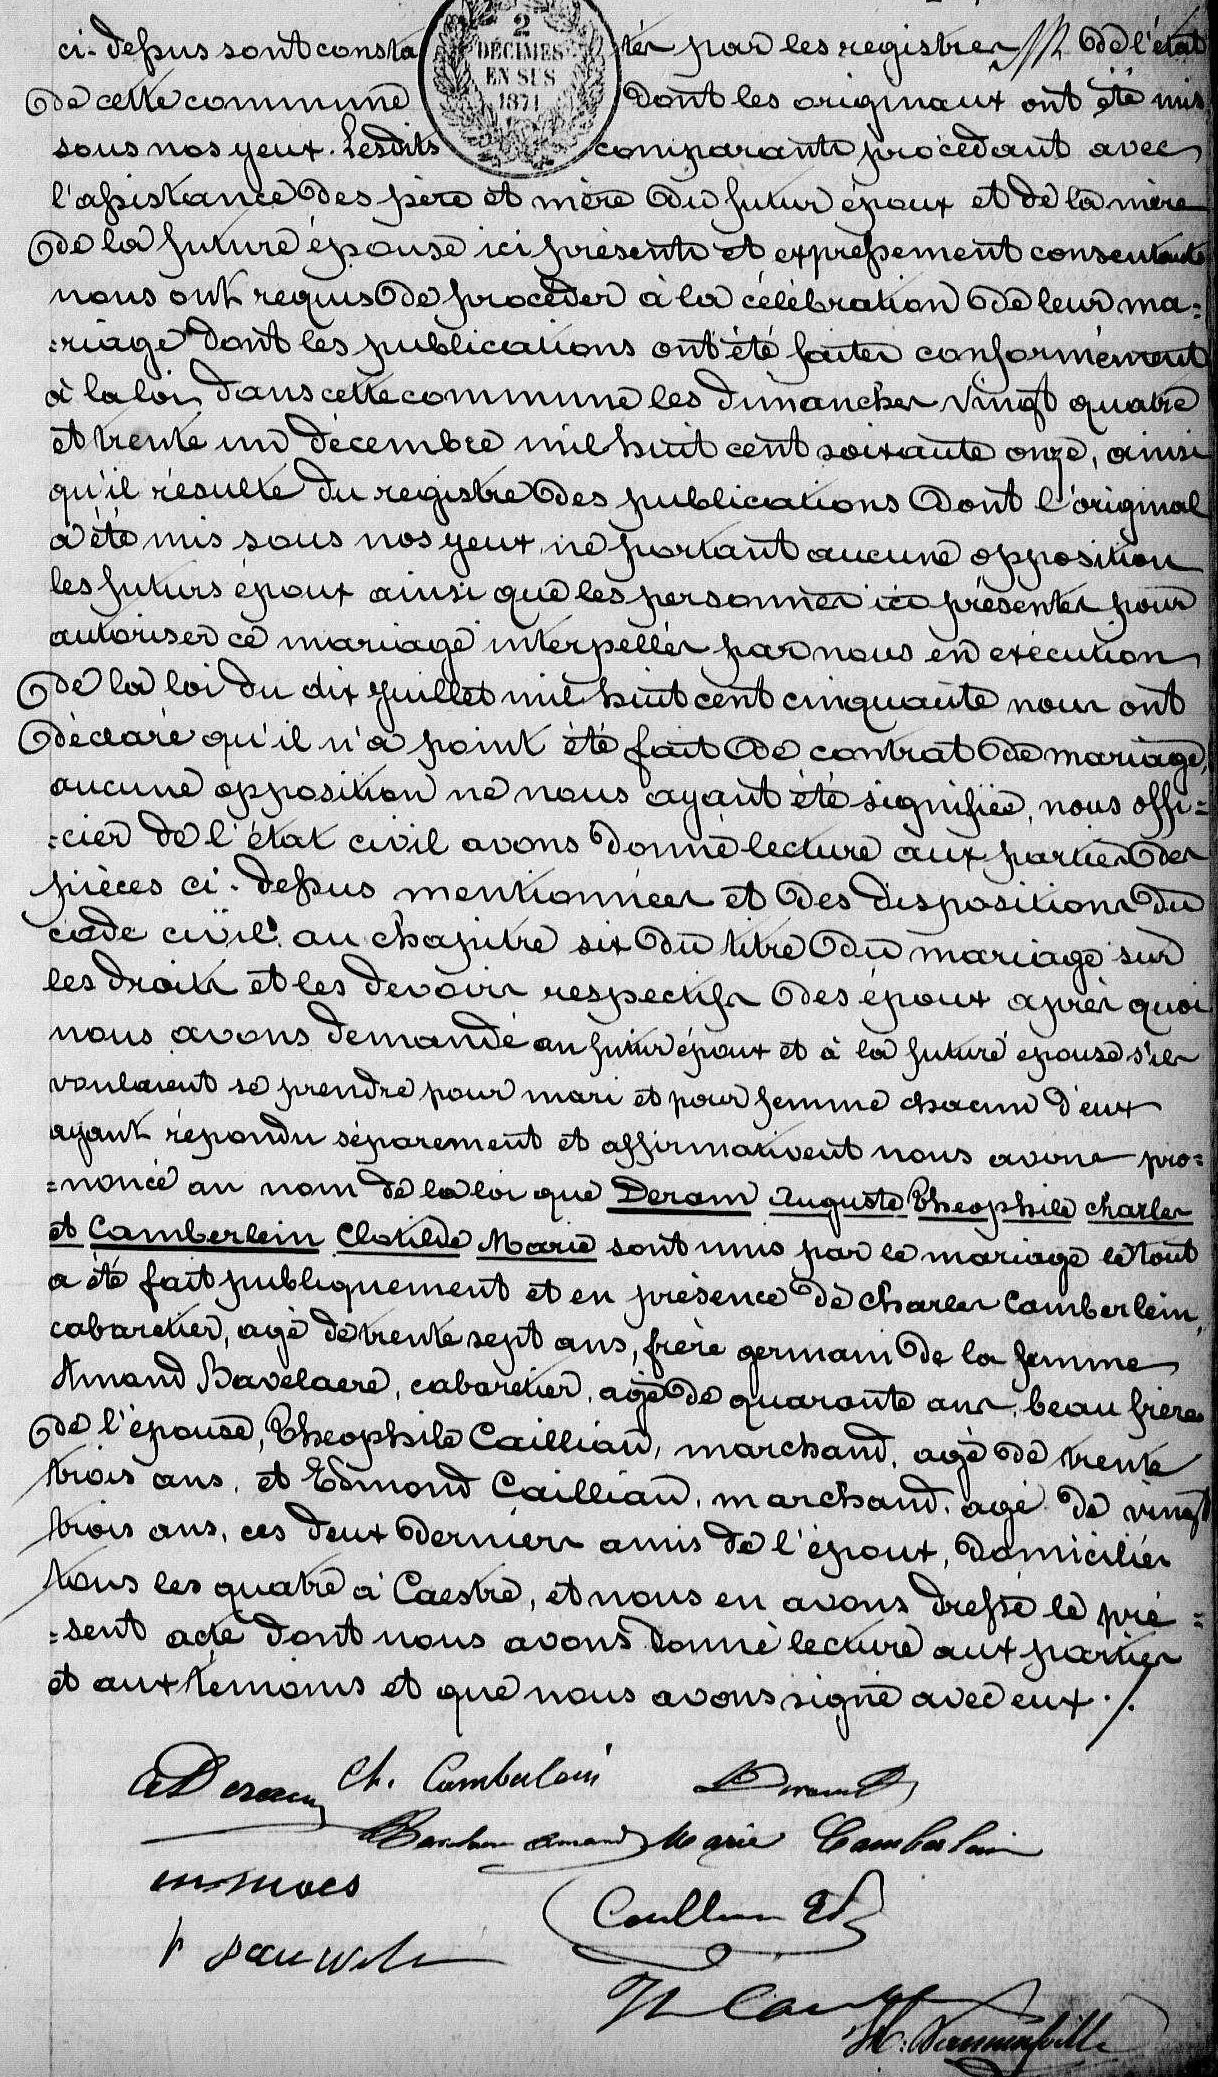 2
DÉCIMES
EN SUS
1871
ci-dessus sont consta tés par les registres de l'état
de cette commune dont les originaux ont été mis
sous nos yeux. Lesdits comparants procédant avec
l'assistance des père et mère du futur époux et de la mère
de la future épouse ici présents et expressement consentants
nous ont requis de procéder à la célébration de leur ma=
=riage dont les publications ont été faites conformément
à la loi dans cette commune les dimanches vingt quatre
et trente un décembre mil huit cent soixante onze, ainsi
qu'il résulte du registre des publications dont l'original
a été mis sous nos yeux ne portant aucune opposition
les futurs époux ainsi que les personnes ici présentes pour
autoriser ce mariage interpellés par nous en exécution
de la loi du dix juillet mil huit cent cinquante nous ont
déclaré qu'il n'a point été fait de contrat de mariage,
aucune opposition ne nous ayant été signifiée, nous offi=
=cier de l'état civil avons donné lecture aux parties des
pièces ci-dessus mentionnées et des dispositions du
code civil au chapitre six du titre du mariage sur
les droits et les devoirs respectifs des époux après quoi
nous avons demandé au futur époux et à la future épouse s'ils
voulaient se prendre pour mari et pour femme chacun d'eux
ayant répondu séparement et affirmativent nous avons pro=
=noncé au nom de la loi que Deram Auguste Théophile Charles
et Camberlein Clotilde Marie sont unis par le mariage le tout
a été fait publiquement et en présence de Charles Camberlein,
cabaretier, agé de trente sept ans, frère germain de la femme
Amand Bavelaere, cabaretier, agé de quarante ans, beau frère
de l'épouse, Théophile Cailliau, marchand, agé de trente
trois ans, et Edmond Cailliau, marchand, agé de vingt
trois ans, ces deux derniers amis de l'époux, domiciliés
tous les quatre à Caestre, et nous en avons dressé le pré=
=sent acte dont nous avons donné lecture aux parties
et aux témoins et que nous avons signé avec eux ./.
A Deram Ch. Camberlein
Amand Marie Camberlein